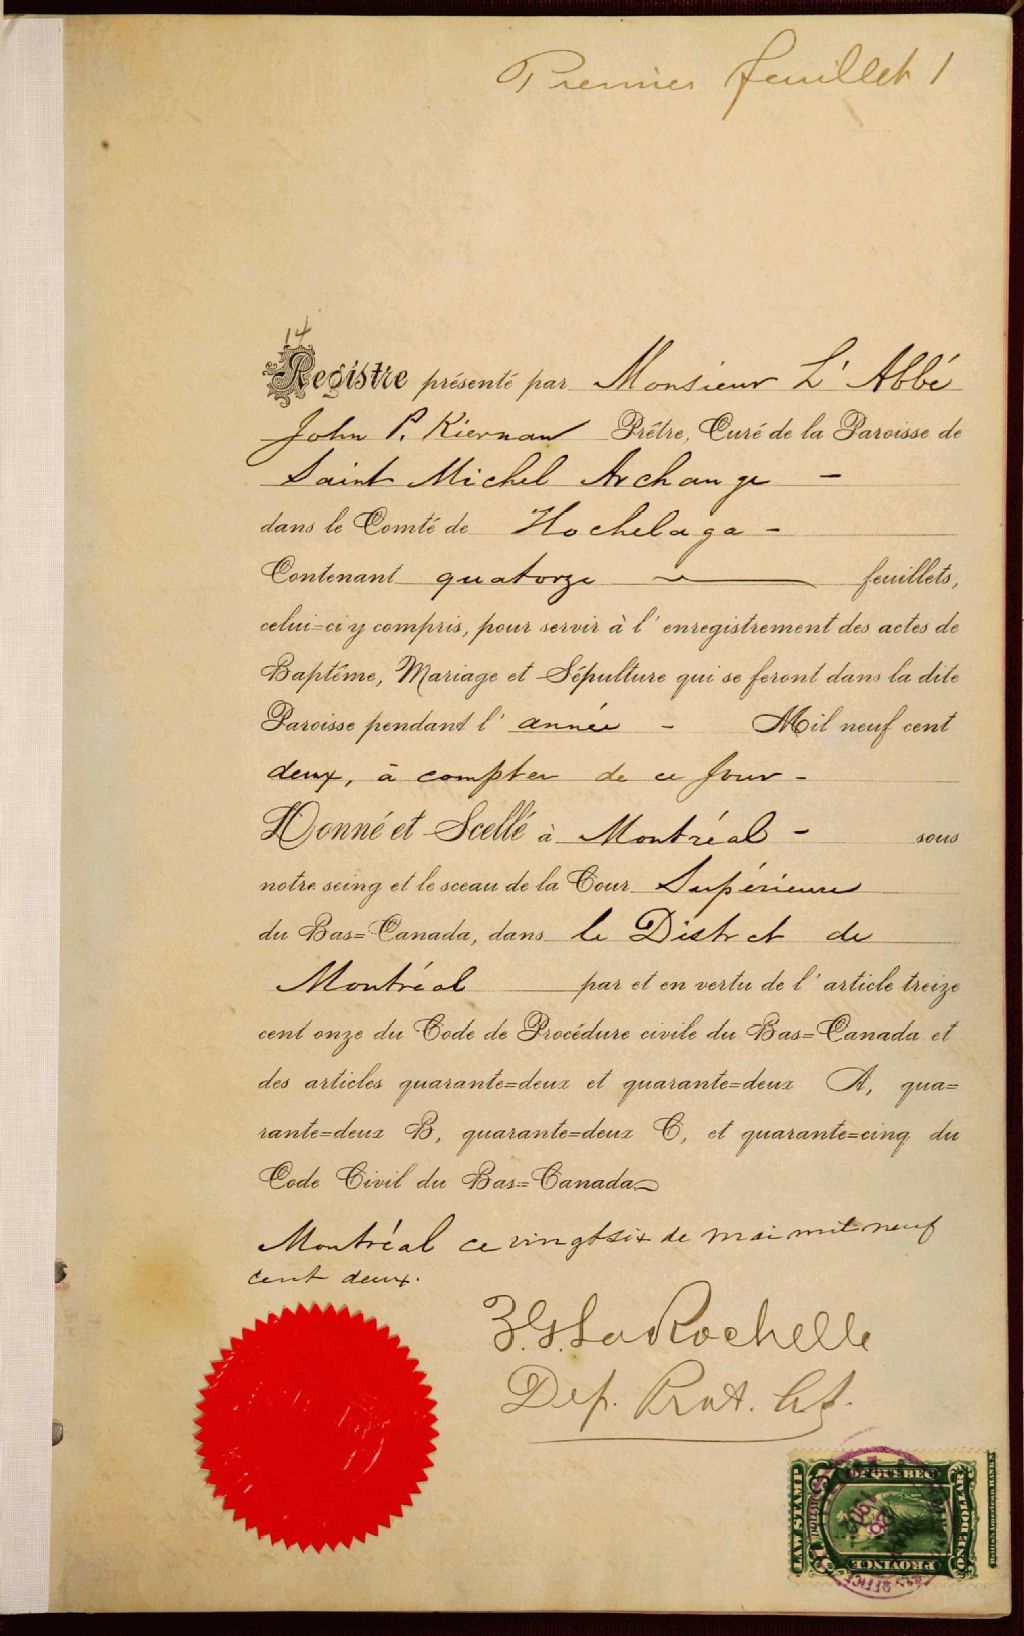 Premier feuillet 1
14
Registre présenté par Monsieur L' Abbé
John P. Kiernan Prêtre, Curé de la Paroisse de
Saint Michel Archange -
dans le Comté de Hochelaga -
Contenant quatorze feuillets,
celui=ci y compris, pour servir à l' enregistrement des actes de
Baptême, Mariage et Sépulture qui se feront dans la dite
Paroisse pendant l' année - Mil neuf cent
deux, à compter de ce jour -
Donné et Scellé à Montréal - sous
notre seing et le sceau de la Cour Supérieure
du Bas=Canada, dans le District de
Montréal par et en vertu de l' article treize
cent onze du Code de Procédure civile du Bas=Canada et
des articles quarante=deux et quarante=deux A, qua=
rante=deux B, quarante=deux C, et quarante=cinq du
Code Civil du Bas=Canada
Montréal ce vingt six de mai mil neuf
cent deux.
LaRochelle
Dep. Prot.
LAW STAMP
QUEBEC
PROVINCE
ONE DOLLAR